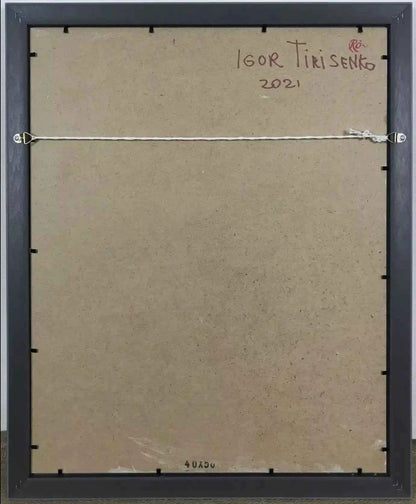 IGOR TIRISENKO
2021
40X50